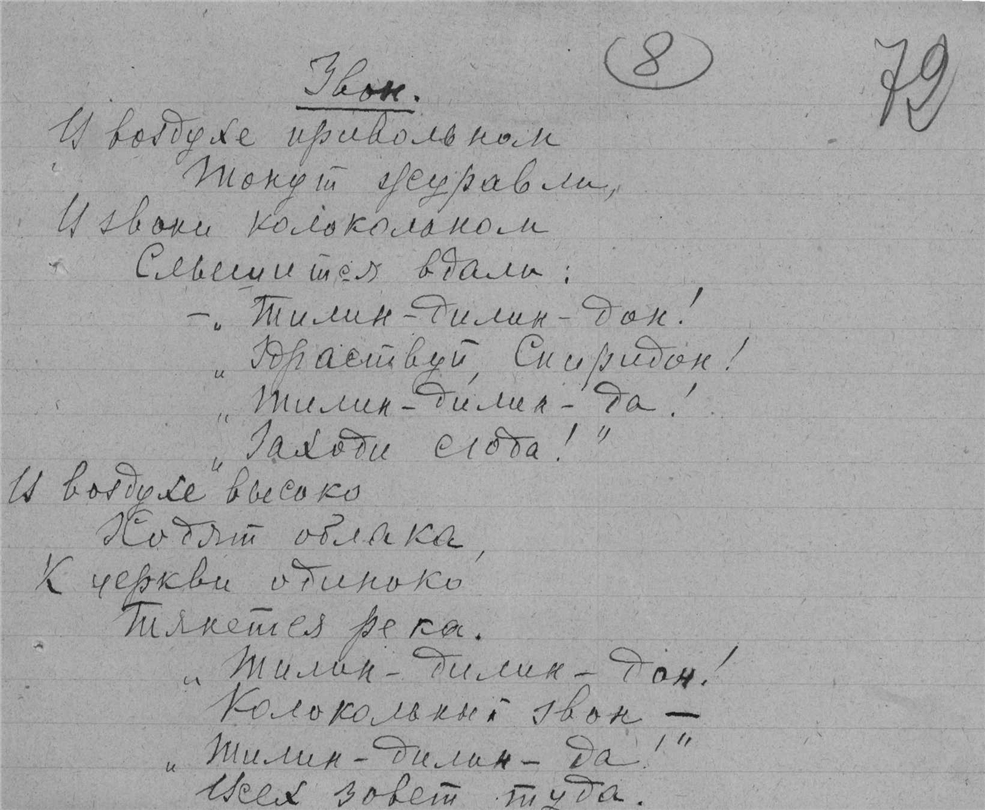 8
72
Звон.
В воздухе привольном
Тонут журавли,
В звоне колокольном
Слышится вдали:
–„Тилин-дилин-дон!
„Здраствуй, Спиридон!
„Тилин-дилин-да!
„Заходи сюда!"
В воздухе высоко
Ходят облака,
К церкви одиноко
Тянется река.
„Тилин-дилин-дон!
Колокольный звон –
„Тилин-дилин-да!"
Всех зовет туда.